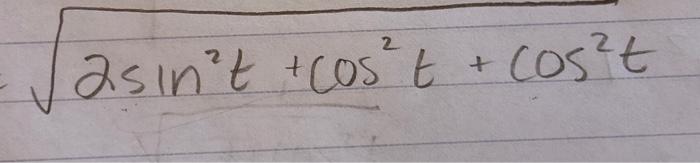 = √(2sin²t + cos²t + cos²t)